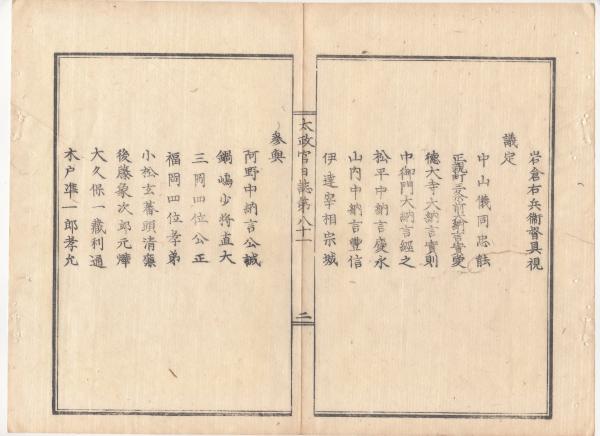 岩倉右兵衞督具視
議定
中山儀同忠能
正親町三条前大納言實愛
德大寺大納言實則
中御門大納言經之
松平中納言慶永
山内中納言豐信
伊達宰相宗城
太政官日誌第八十一
二
參與
阿野中納言公誠
鍋嶋少將直大
三岡四位公正
福岡四位孝弟
小松玄蕃頭清廉
後藤象次郎元燁
大久保一藏利通
木戸準一郎孝允